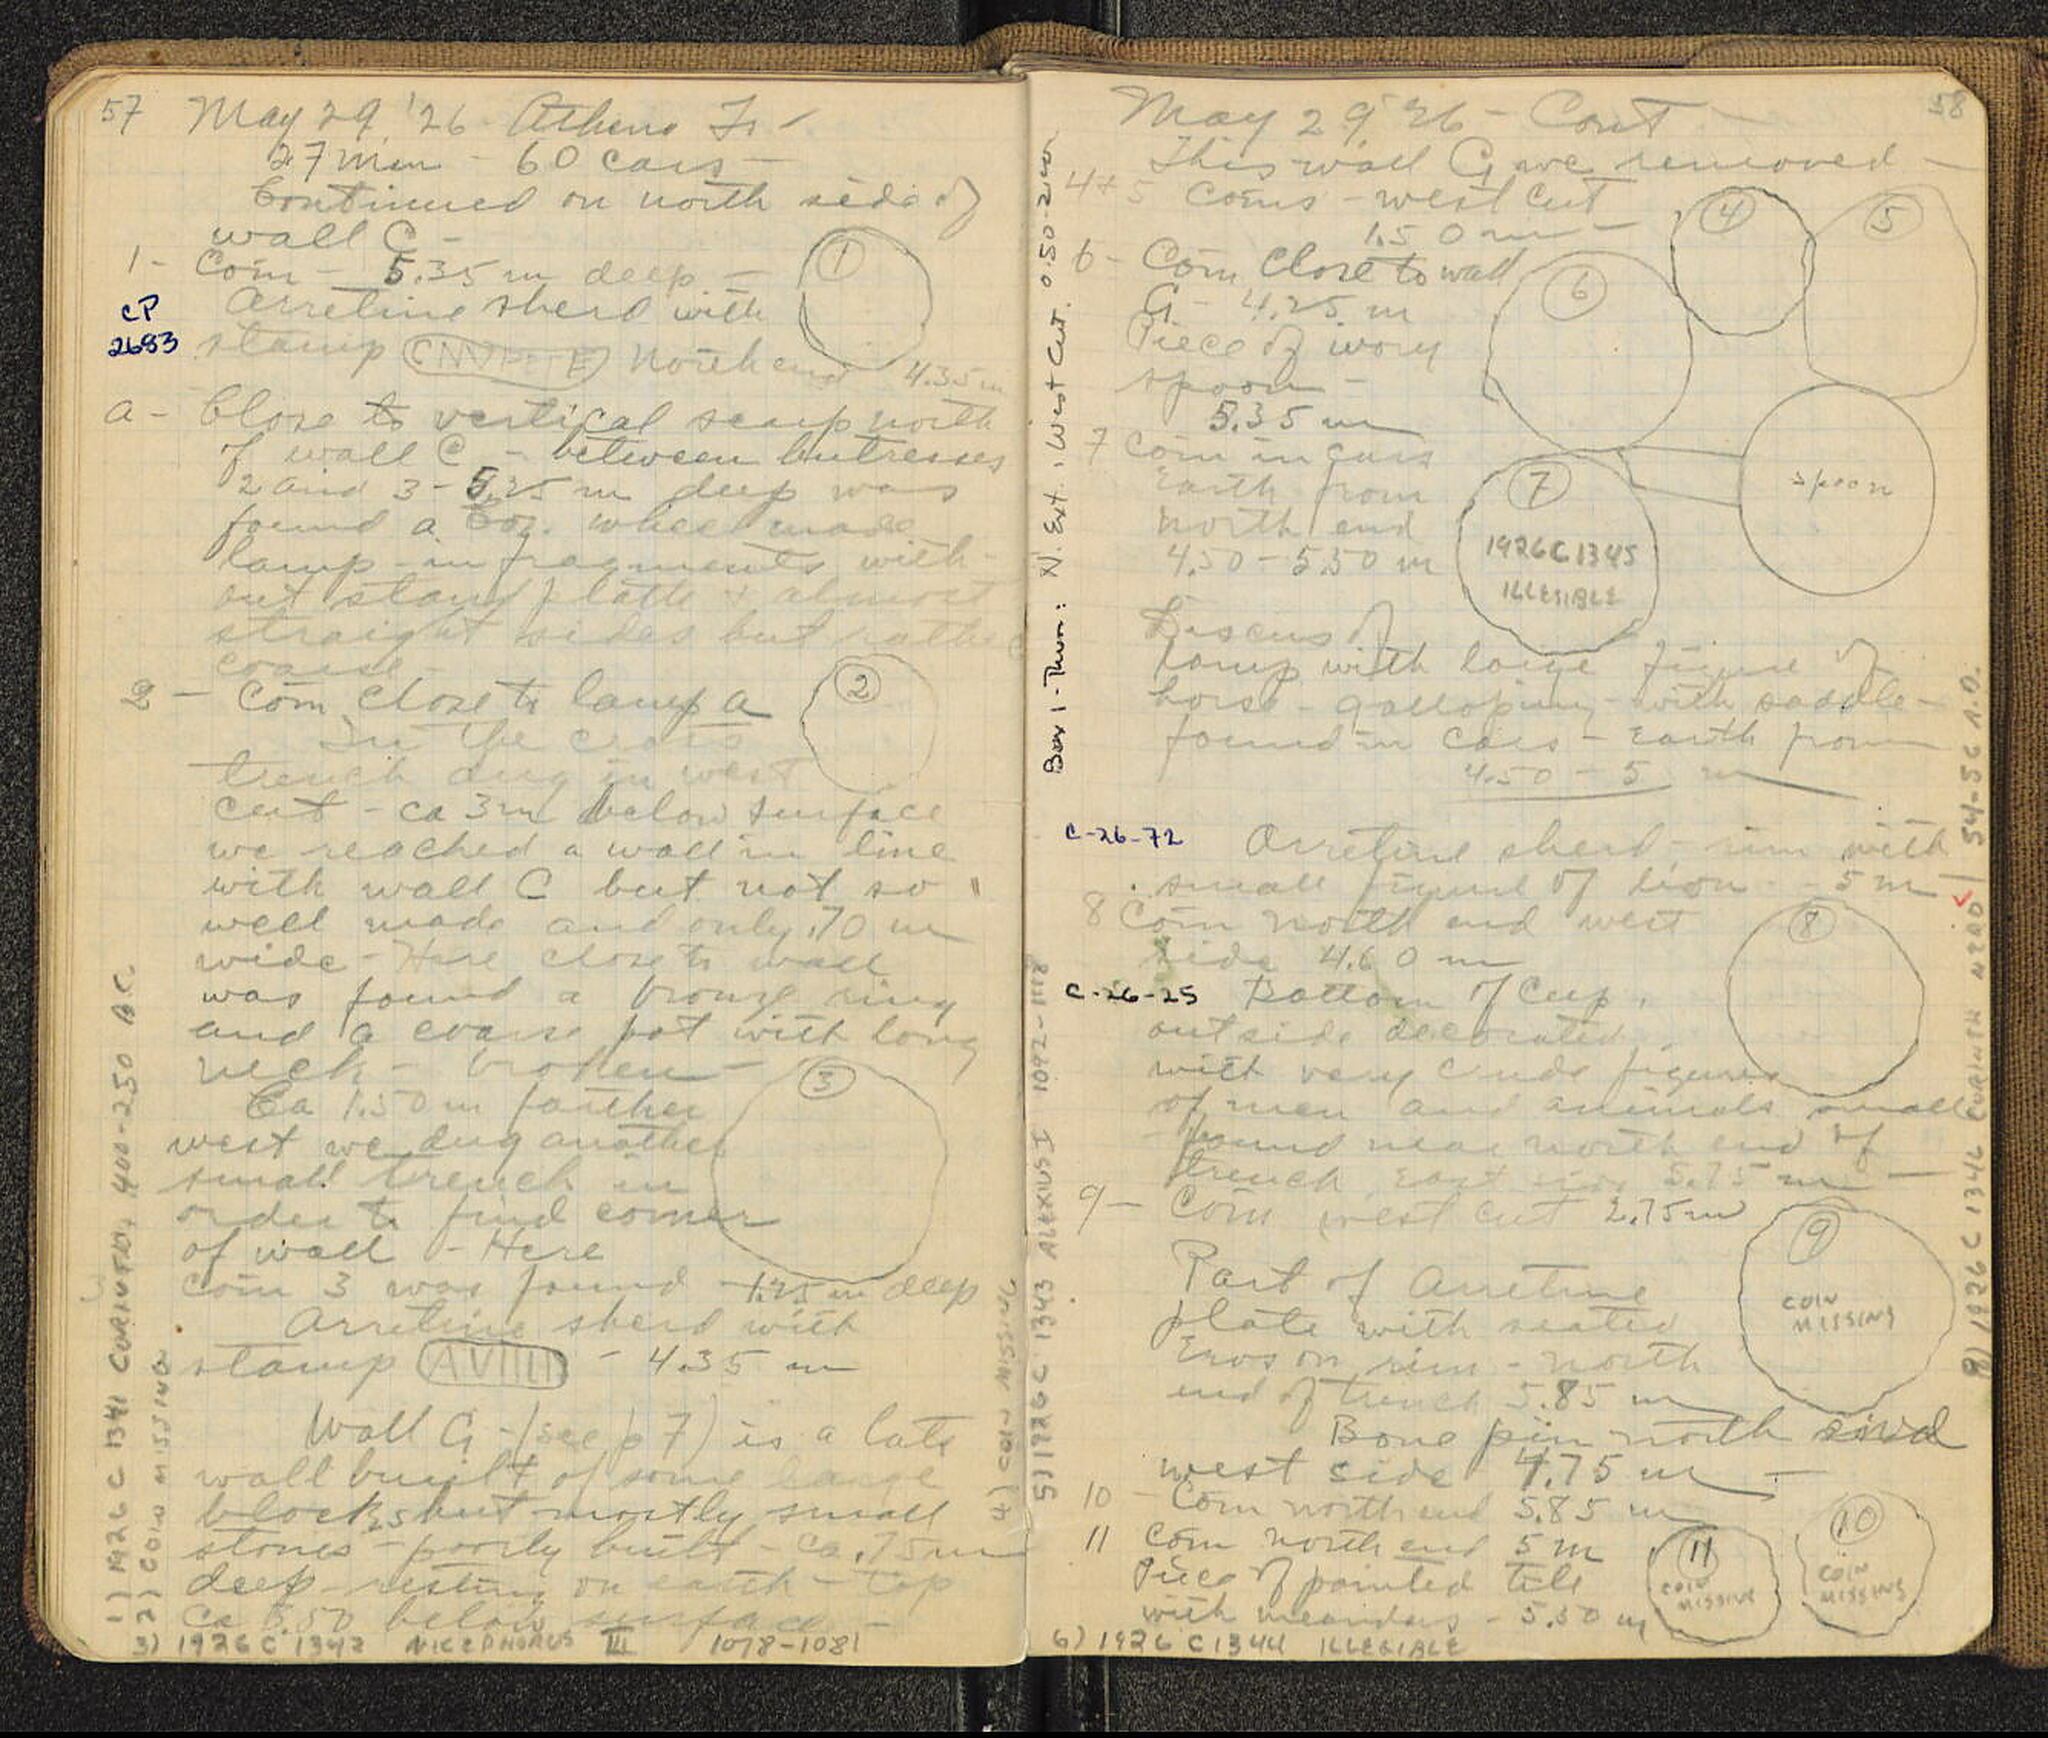 57 May 29, '26 Athena Tr -
27 men - 60 cars -
Continued on north side of
wall C -
1 - Coin - 5.35 m deep -
CP
2683
Arretine sherd with
stamp north end 4.35 m
a - Close to vertical scarp north
of wall C - between butresses
2 and 3 - 5.25 m deep was
found a Cor. wheel made
lamp - in fragments with-
out stand, flatte + almost
straight sides but rather
coarse -
2 - Coin close to lamp a
In the cross
trench dug in west
cut - ca 3 m below surface
we reached a wall in line
with wall C but not so
well made and only .70 m
wide - Here close to wall
was found a bronze ring
and a coarse pot with long
neck - broken -
Ca 1.50 m farther
west we dug another
small trench in
order to find corner
of wall - Here
coin 3 was found - 1.25 m deep
Arretine sherd with
stamp AVIIII - 4.35 m
Wall G - (see p 7) is a late
wall built of some large
blocks but mostly small
stones - poorly built - ca .75 m
deep - resting on earth - top
ca 0.50 below surface -
3) 1926 C 1342 NICEPHORUS III 1078-1081
1
2
3
1) 1926 C 1341 CORINTH, 400-250 B.C.
2) COIN MISSING
4) COIN MISSING
58
May 29, '26 - Cont
This wall G we removed -
4+5 Coins - west cut
1.50 m -
6 - Coin close to wall
G - 4.25 m
Piece of ivory
spoon -
5.35 m
7 Coin in cars
Earth from
north end
4.50 - 5.50 m
4
5
6
7
1926 C 1345
ILLEGIBLE
spoon
Discus of
lamp with large figure of
horse - galloping - with saddle -
found in cars - earth from
4.50 - 5 m
C-26-72 Arretine sherd - rim with
small figure of lion - 5 m
8 Coin north end west
side 4.60 m
8
C-26-25 Bottom of cup,
outside decorated
with very crude figures
of men and animals small
found near north end of
trench east side 5.75 m -
9 - Coin west cut 2.75 m
9
COIN
MISSING
Part of Arretine
plate with seated
Eros on rim - north
end of trench 5.85 m
Bone pin north end
west side 4.75 m -
10 - Coin north end 5.85 m
11 Coin north end 5 m
Piece of painted tile
with meanders - 5.50 m
11
COIN
MISSING
10
COIN
MISSING
6) 1926 C 1344 ILLEGIBLE
Box 1 - Thurs: N. Ext., West Cut. 0.50-2.00
5) 1926 C 1343 ALEXIUS I 1092-1118
8) 1926 C 1346 CORINTH NERO 54-56 A.D.